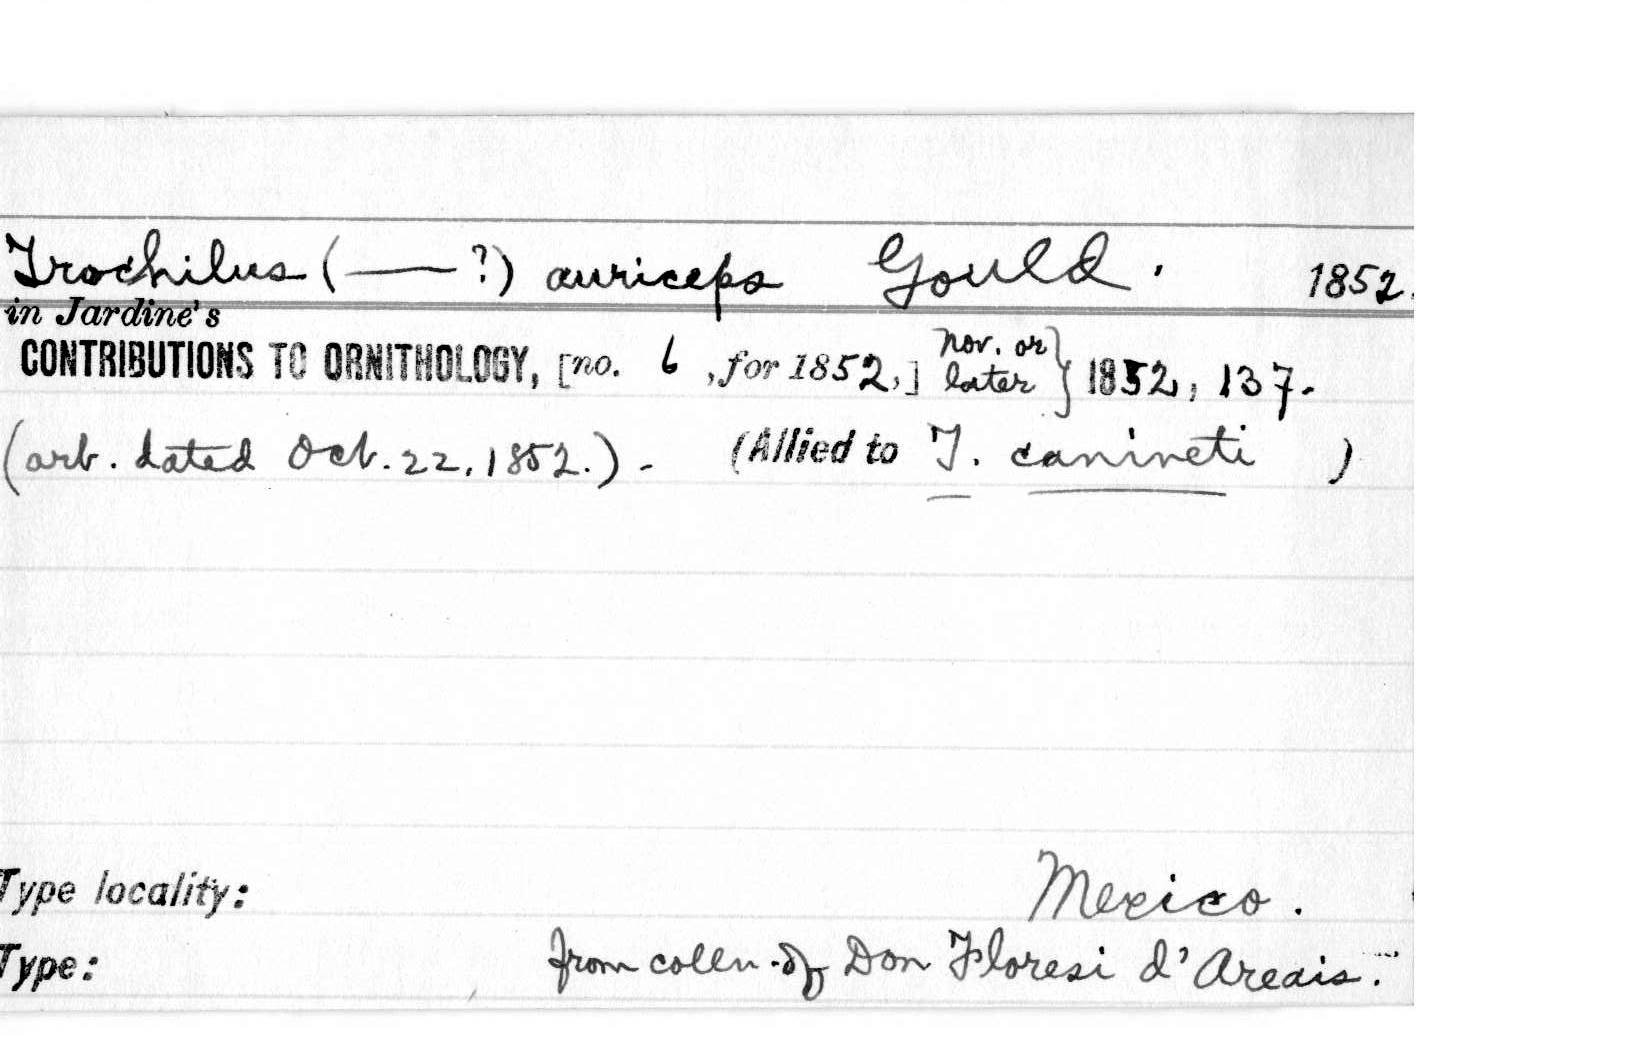 Trochilus (——?) auriceps Gould. 1852.
in Jardine's
CONTRIBUTIONS TO ORNITHOLOGY, [no. 6, for 1852,] nov. or later} 1852, 137.
(art. dated Oct. 22, 1852.) - (Allied to T. canineti )
Type locality: Mexico.
Type: from colln. of Don Floresi d'Areais.